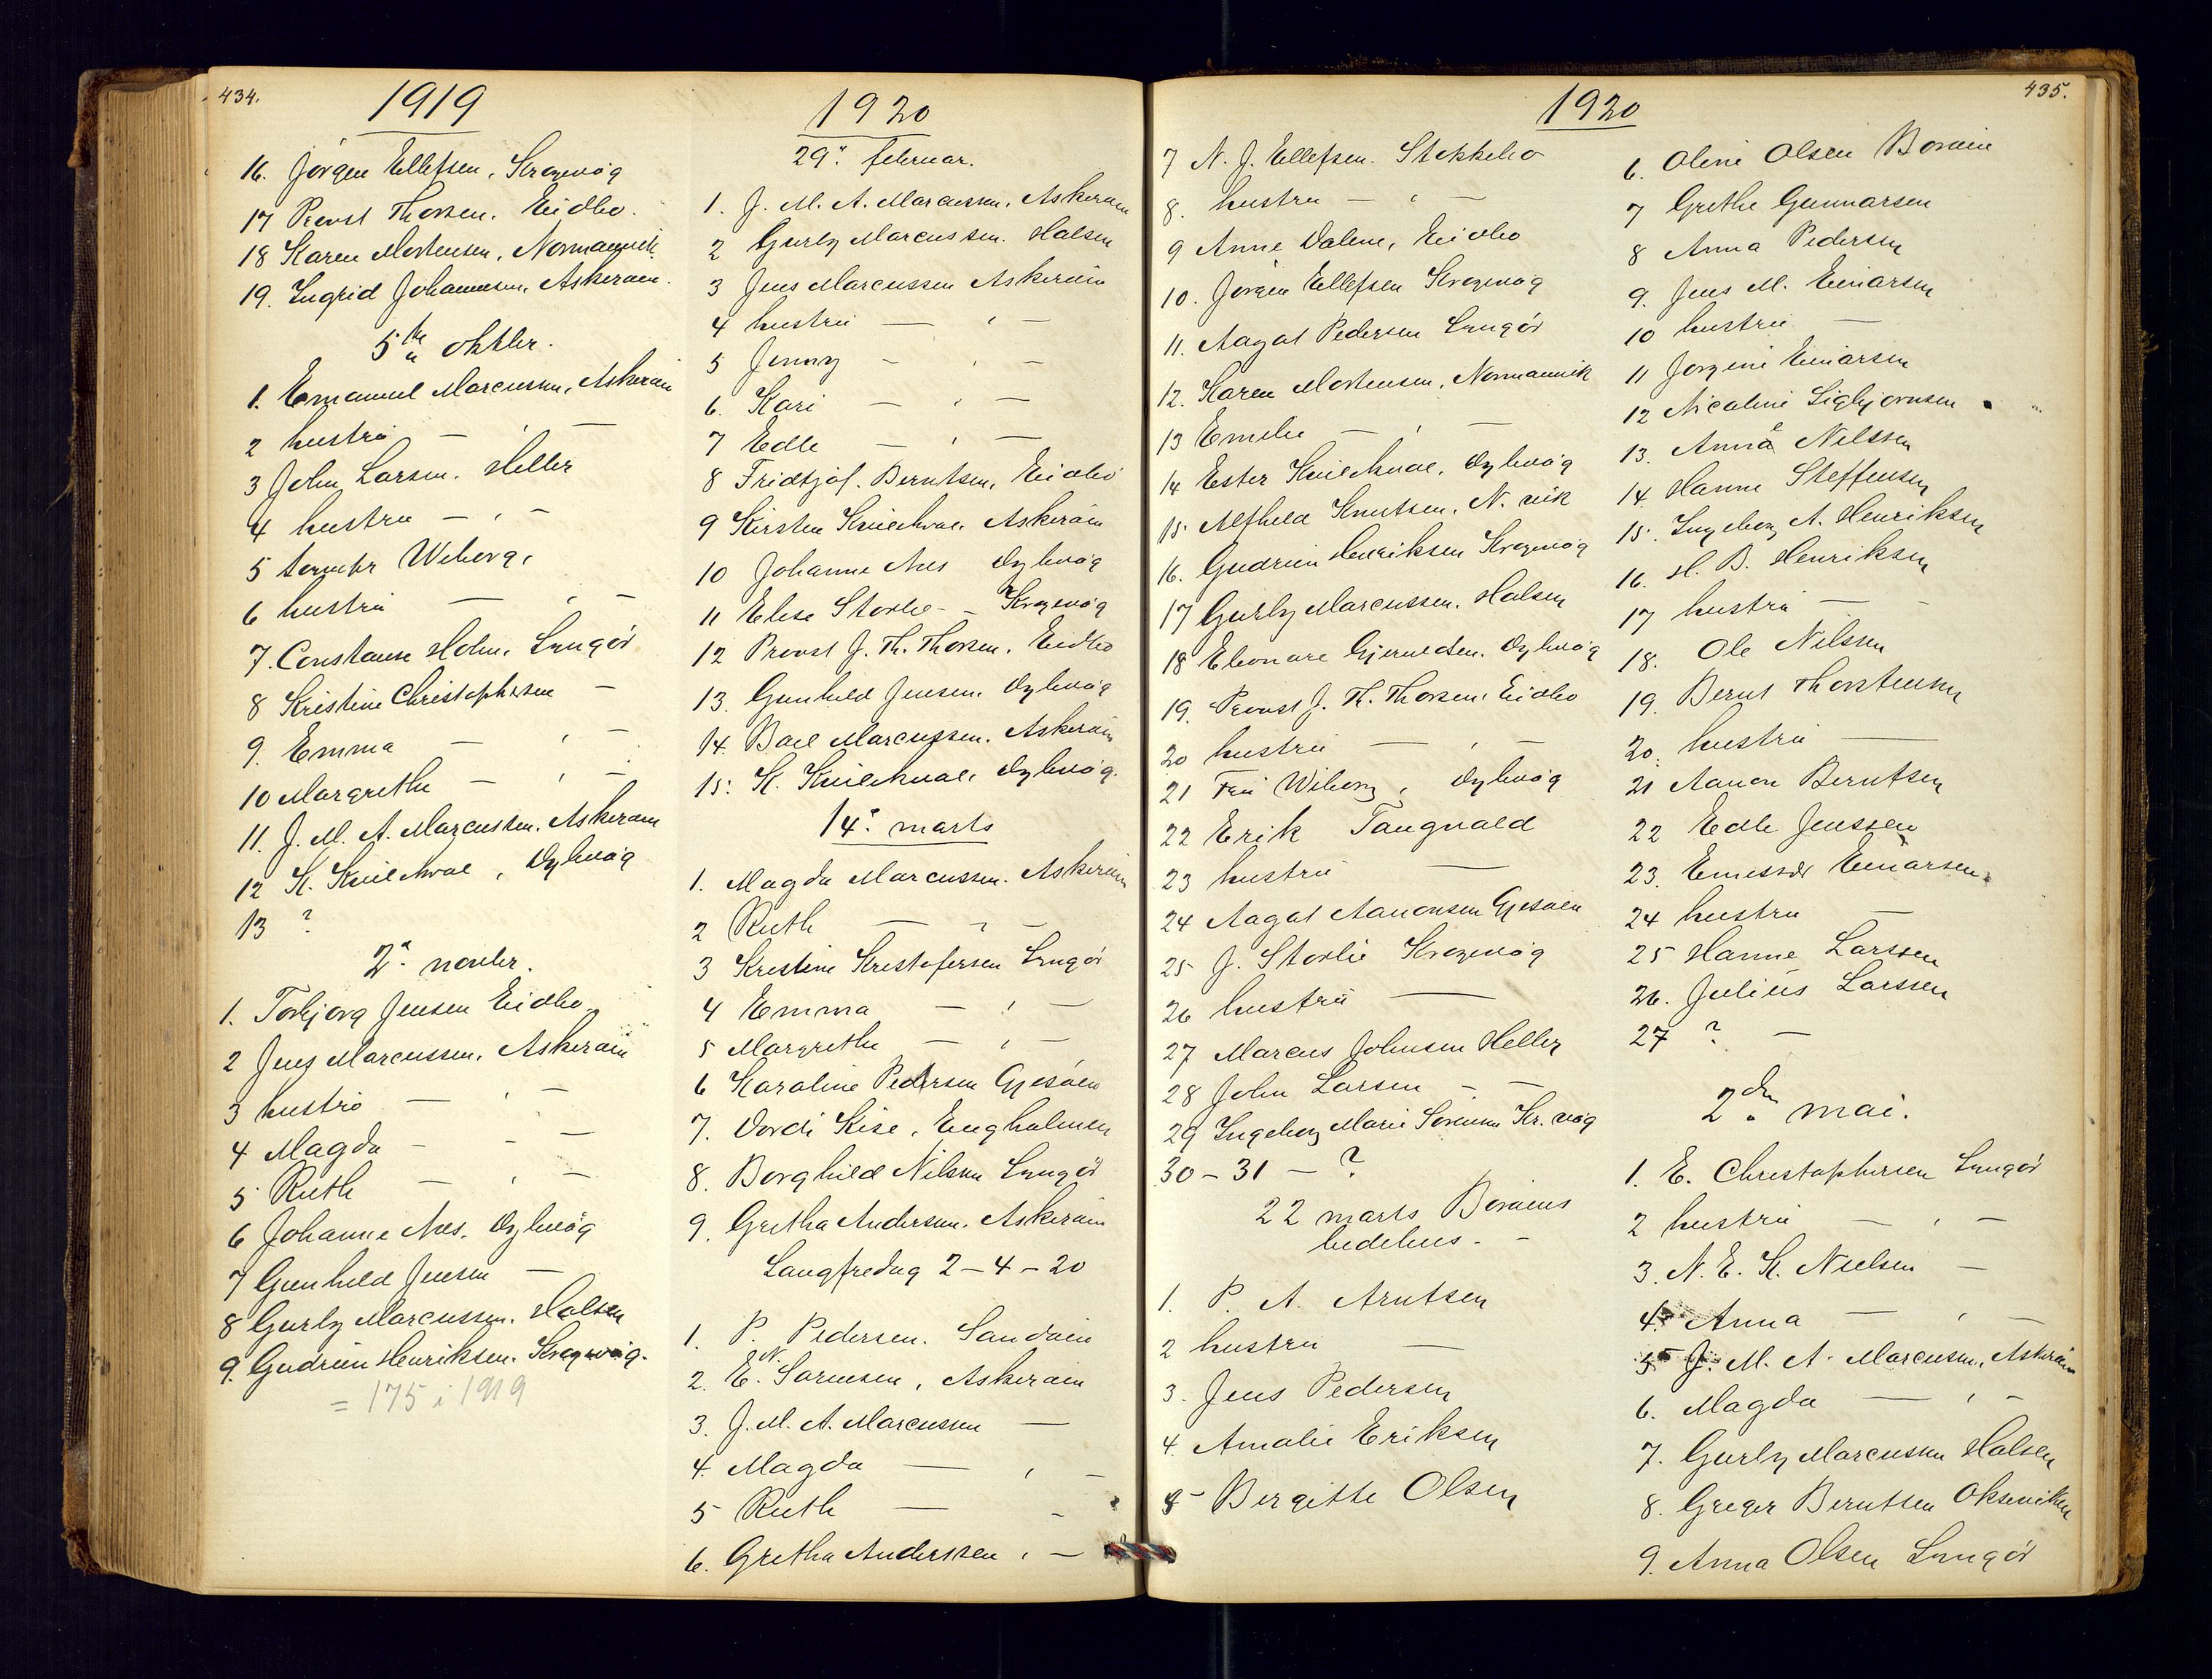 434.
1919
16. Jörgen Ellefsen, Kragevåg
17 Provst Thorsen. Eidbo.
18 Karen Mortensen, Normannvik.
19. Ingrid Johannesen, Askeröin.
5te oktbr.
1. Emanuel Marcussen, Askeröin
2 hustru — , —
3 John Larsen. Heller
4 hustru — , —
5 Wiborg,
6 hustru — , —
7. Constanse Holm, Lyngör
8 Kristine Christophersen —
9. Emma — , —
10 Margrethe — , —
11. J. M. A. Marcussen. Askeröin
12 K. Kvilekval, Dybvåg
13 ?
2. novbr.
1. Torbjorg Jensen Eidbo
2 Jens Marcussen, Askeröin
3 hustru — , —
4 Magda — - —
5 Ruth — , —
6 Johanne Aas. Dybvåg
7 Gunhild Jensen —
8 Gurly Marcussen. Halsen
9. Gudrun Henriksen. Kragevåg.
= 175 i 1919
1920
29. februar.
1. J. M. A. Marcussen, Askeröin
2 Gurly Marcussen. Halsen
3 Jens Marcussen Askeröin
4 hustru — , —
5 Jenny — , —
6. Kari — , —
7 Edle — , —
8 Fridtjof. Berntsen, Eidbo
9 Kirsten Kvilekval, Askeröin
10 Johanne Aas Dybvåg
11 Elise Storlie - Kragevåg
12 Provst J. Th. Thorsen, Eidbo
13. Gunhild Jensen. Dybvåg
14. Boel Marcussen. Askeröin
15. K. Kvilekval, Dybvåg.
14. marts
1. Magda Marcussen. Askeröin
2 Ruth — , —
3 Kristine Kristofersen Lyngör
4 Emma — , —
5 Margrethe — , —
6 Karoline Pedersen Gjesöen
7. Vordi Kise, Engholmen
8. Borghild Nilsen Lyngör
9. Gretha Andersen. Askeröin
Langfredag 2-4-20
1. P. Pedersen. Sandöin
2. E. N. Sörensen, Askeröin
3. J. M. A. Marcussen —
4. Magda — , —
5 Ruth — -
6. Gretha Anderssen , —
435.
1920
7 N. J. Ellefsen. Stokkebo
8. hustru — , —
9 Anne Dalene, Eidbo
10. Jörgen Ellefsen Kragevåg
11. Aagot Pedersen Lyngör
12. Karen Mortensen, Normannvik
13 Emilie — , —
14 Ester Kvilekval, Dybvåg
15. Alfhild Knutsen, N. vik
16. Gudrun Henriksen Kragevåg
17 Gurly Marcussen, Halsen
18 Eleonore Gjeruldsen. Dybvåg
19. Provst J. Th. Thorsen, Eidbo
20 hustru — , —
21 Fru Wiborg, Dybvåg
22 Erik Tangvald
23 hustru —
24 Aagot Aanonsen Gjesöen
25 J. Storlie Kragevåg
26 hustru —
27 Marcus Johnsen Heller
28 John Larsen - —
29 Ingeborg Marie Sörensen Kr. våg
30 - 31 — ?
22 marts Boröens
bedehus. -
1. P. A. Arntsen
2 hustru —
3. Jens Pedersen
4. Amalie Eriksen
5 Bergitte Olsen
6. Oline Olsen Boröin
7 Grethe Gunnarsen
8 Anna Pedersen
9. Jens M. Einarsen
10 hustru —
11 Jorgine Einarsen
12 Nicoline Sigbjørnsen
13. Anna Nilssen
14. Hanne Steffensen
15. Ingeborg A. Henriksen
16. H. B. Henriksen
17 hustru — -
18. Ole Nilssen
19. Bernt Thorstensen
20. hustru —
21 Aanon Berntsen
22 Edle Jenssen
23. Einarsen.
24 hustru —
25 Hanne Larssen
26. Julius Larssen
27 ? —
2den mai.
1. E. Christophersen Lyngör
2 hustru — , —
3. N. E. K. Nielsen —
4. Anna — , —
5 J. M. A. Marcussen, Askeröin
6. Magda — , —
7. Gurly Marcussen Halsen
8. Greger Berntsen Okseviken
9. Anna Olsen Lyngör